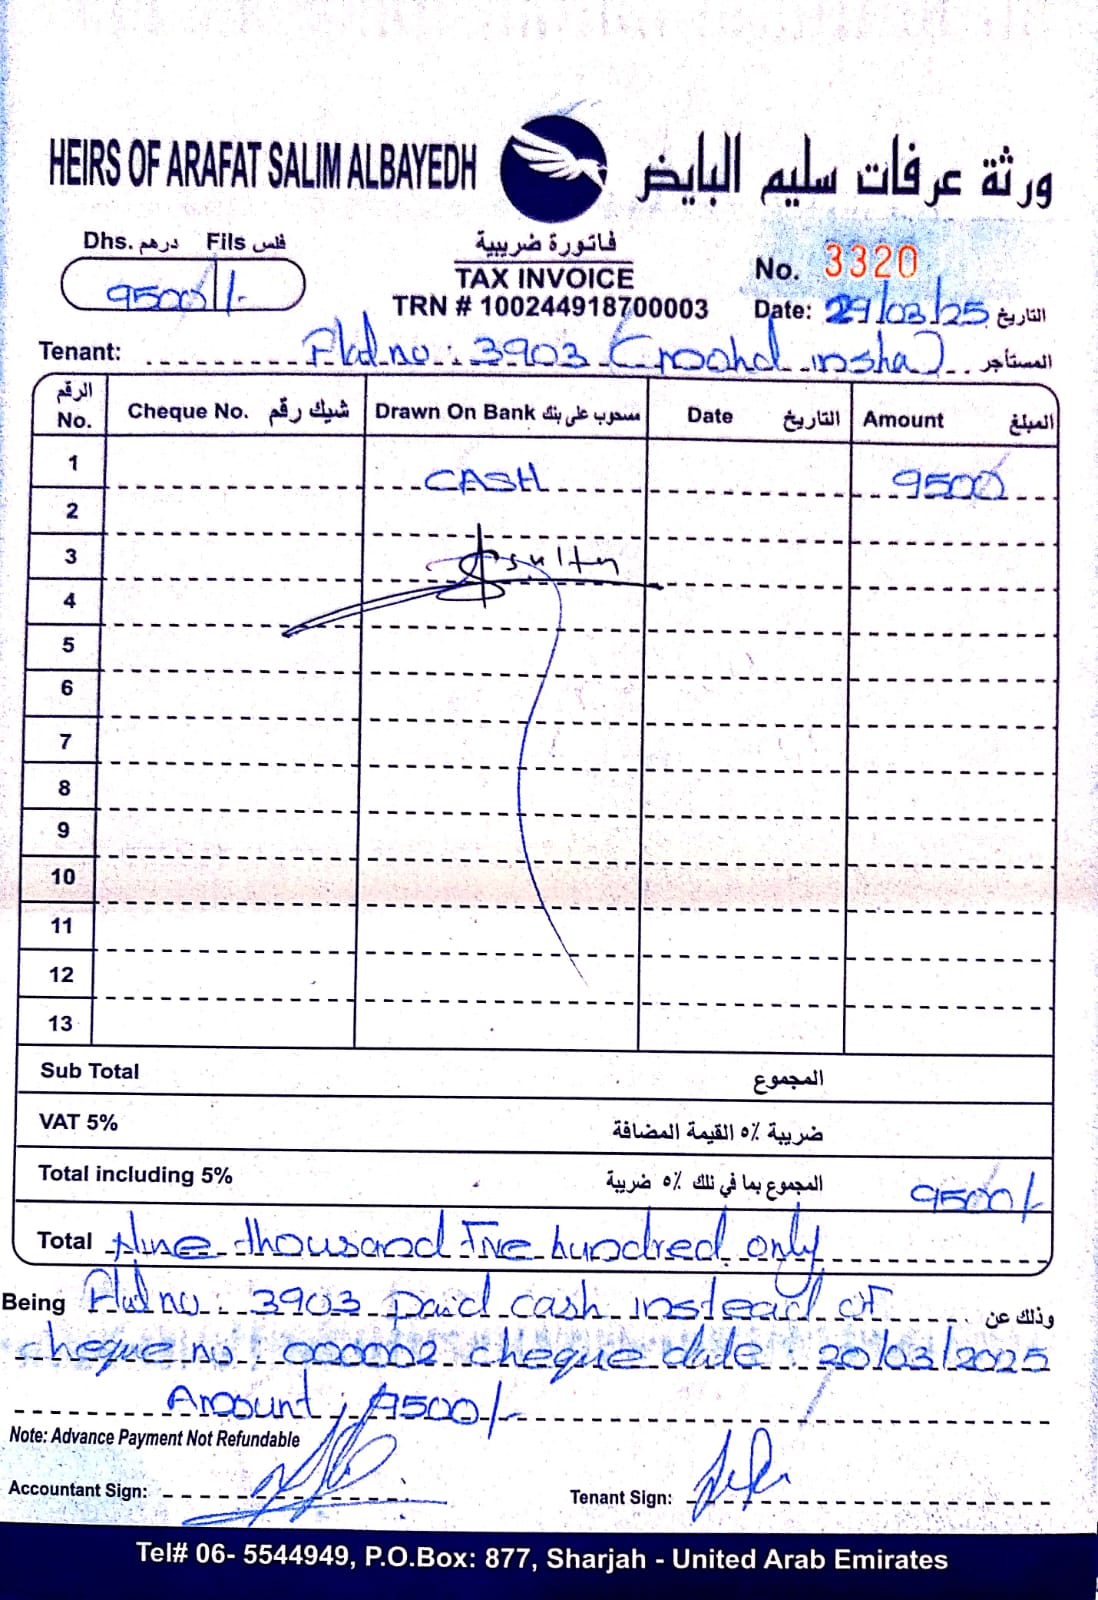 HEIRS OF ARAFAT SALIM ALBAYEDH ورثة عرفات سليم البايض
Dhs. درهم Fils فلس
9500/-
فاتورة ضريبية
TAX INVOICE
TRN # 100244918700003
No. 3320
Date: 29/03/25 التاريخ
Tenant: Flat no : 3903 ( المستأجر
الرقم No. Cheque No. شيك رقم Drawn On Bank مسحوب على بنك Date التاريخ Amount المبلغ
1 CASH 9500
2
3
4
5
6
7
8
9
10
11
12
13
Sub Total المجموع
VAT 5% ضريبة ٥٪ القيمة المضافة
Total including 5% المجموع بما في ذلك ٥٪ ضريبة 9500/-
Total Nine thousand Five hundred only
Being Flat no : 3903 paid cash instead of وذلك عن
cheque no : 000002 cheque date : 20/03/2025
Amount : 9500/-
Note: Advance Payment Not Refundable
Accountant Sign:
Tenant Sign:
Tel# 06- 5544949, P.O.Box: 877, Sharjah - United Arab Emirates